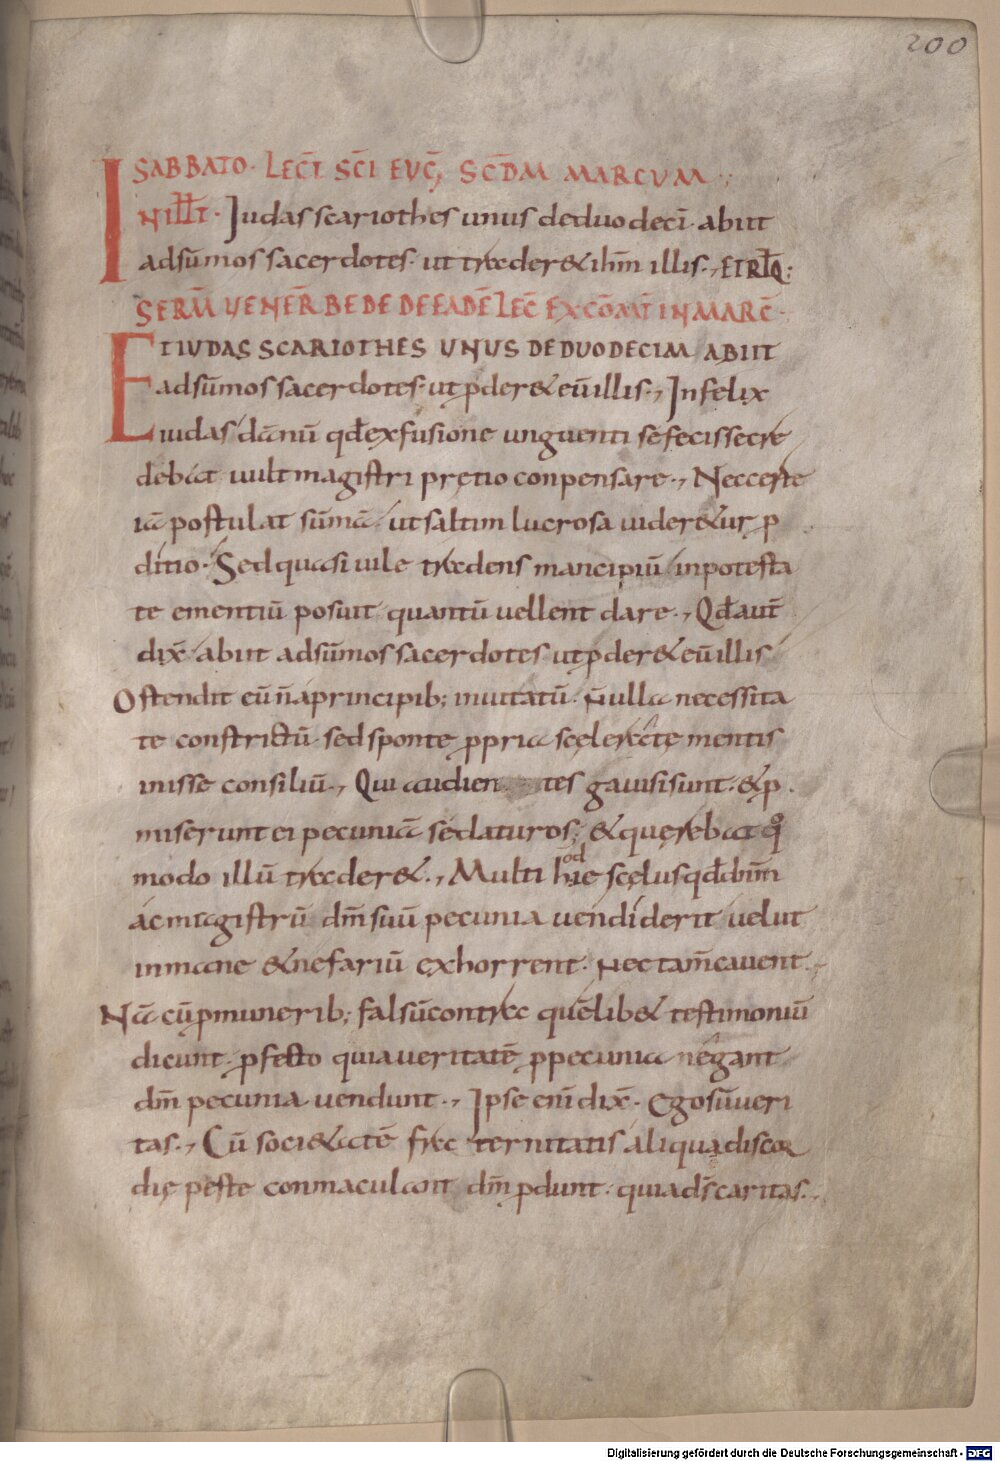 200
SABBATO. LEC̄T SC̄I EUG̅, SC̄DM MARCUM
IN ILL̅T. Judas scariothes unus deduodeci̅. abiit
adsu̅mos sacerdotes. ut traderet ihm̅ illis., ET RL̅Q:
SERM̅ UENER̅ BEDE DE EADE̅ LEC̅ EX CŌMT̅ IN MARC̅.
ETIUDAS SCARIOTHES UNUS DEDUODECIM ABIIT
adsu̅mos sacerdotes. ut ꝓderet eu̅ illis., Jnfelix
iudas da̅nu̅ qđ exfusione unguenti sefecissecre
debat uult magistri pretio conpensare., Neccerte
ia̅ postulat su̅ma̅. ut saltim lucrosa uideret͛ur ꝑ
ditio. Sed quasi uile tradens mancipiu̅ inpotesta
te ementiu̅ posuit quantu̅ uellent dare., Qđ aut̅
dix̅ abiit adsu̅mos sacerdotes ut ꝓderet eu̅ illis
Ostendit eu̅ n̅ aprincipib; inuitatu̅. Nulla necessita
te constrictu̅. sed sponte ꝓpria sceleratę mentis
inisse consiliu̅., Qui audien tes gauisi sunt. & ꝓ
miserunt ei pecunia̅ sedaturos; & querebat q̊
modo illu̅ traderet., Multi hodie scelus qđ dnm̅
ac magistru̅ dm̅ suu̅ pecunia uendiderit uelut
inmane & nefariu̅ exhorrent. Nec tam̅ cauent.
Na̅ cu̅ ꝓ munerib; falsu̅ contra que̅libet testimoniu̅
dicunt. ꝓfecto quia ueritate̅ ꝓ pecunia negant
dm̅ pecunia uendunt., Jpse eni̅ dix̅. Ego su̅ ueri
tas., Cu̅ societate̅ fra ternitatis aliqua discor
dię peste conmaculant dm̅ ꝓdunt. quia ds̅ caritas.,
Digitalisierung gefördert durch die Deutsche Forschungsgemeinschaft - DFG